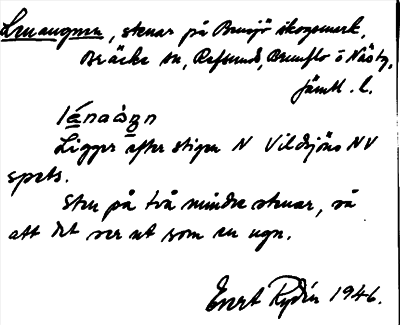 Lenaugnen, stenar på Bensjö skogsmark,
Bräcke sn, Refsunds, Brunflo o Näs tg,
Jämtl. l.
lénaùgn
Ligger efter stigen N Vildsjöns NV
spets.
Sten på två mindre stenar, så
att det ser ut som en ugn.
Evert Rydén 1946.